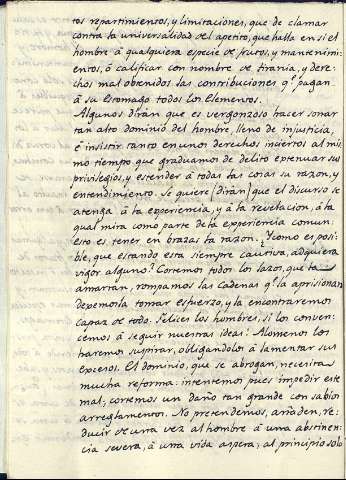 tos repartimientos, y limitaciones, que de clamar
contra la universalidad del apetito, que halla en si el
hombre á qualquiera especie de frutos, y mantenimi-
entos, ó calificar con nombre de tirania, y dere-
chos mal obtenidos las contribuciones q.e pagan
á su Estomago todos los Elementos.
Algunos dirán que es vergonzoso hacer sonar
tan alto dominio del hombre, lleno de injusticia,
é insistir tanto en unos derechos inciertos al mis
mo tiempo que graduamos de delito extenuar sus
privilegios, y estender á todas las cosas su razon, y
entendimiento. Se quiere (dirán) que el discurso se
atenga á la experiencia, y á la revelacion, á la
qual mira como parte de la experiencia comun:
esto es tener en brazas la razon. ¿Y como es posi-
ble, que estando esta siempre cautiva, adquiera
vigor alguno? Cortemos todos los lazos, que la
amarran, rompamos las cadenas q.e la aprisionan
dexemosla tomar esfuerzo, y la encontraremos
capaz de todo. Felices los hombres, si los conven-
cemos á seguir nuestras ideas! Alomenos los
haremos suspirar, obligandolos á lamentar sus
excesos. El dominio, que se abrogan, necesita
mucha reforma: intentemos pues impedir este
mal; cortemos un daño tan grande con sabios
arreglamentos. No pretendemos, añaden, re-
ducir de una vez al hombre á una abstinen-
cia severa, á una vida aspera; al principio solo